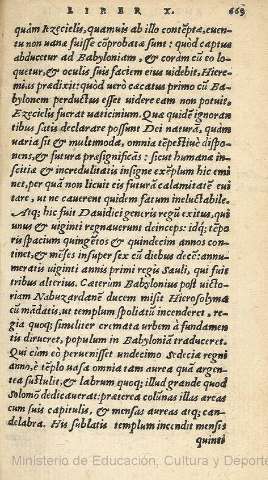 LIBER X. 669
quàm Ezecielis, quamuis ab illo contẽpta, euen-
tu non uana fuisse cõprobata sunt: quòd captus
abducetur ad Babylonium, & coram cũ eo lo-
quetur, & oculis suis faciem eius uidebit, Hiere-
mias prædixit: quòd uerò cæcatus primo cũ Ba-
bylonem perductus esset uidere eam non potuit,
Ezecielis fuerat uaticinium. Quæ quidẽ ignoran
tibus satis declarare possunt Dei naturã, quàm
uaria sit & multimoda, omnia tẽpestiuè dispo-
nens, & futura præsignificãs: sicut humana in-
scitiæ & incredulitatis insigne exẽplum hic emi
net, per quã non licuit eis futurã calamitatẽ eui
tare, ut ne cauerent quidem fatum ineluctabile.
Atq; hic fuit Dauidici generis regũ exitus, qui
unus & uiginti regnauerunt deinceps: idq; tẽpo
ris spacium quingẽtos & quindecim annos con-
tinet, & mẽses insuper sex cũ diebus decẽ: annu-
meratis uiginti annis primi regũ Sauli, qui fuit
tribus alterius. Cæterùm Babylonius post uicto-
riam Nabuzardanẽ ducem misit Hierosolyma
cũ mãdatis, ut templum spoliatũ incenderet, re-
gia quoq; similiter cremata urbem à fundamen
tis dirueret, populum in Babyloniã traduceret.
Qui cùm eò peruenisset undecimo Sedeciæ regni
anno, è tẽplo uasa omnia tam aurea quã argen-
tea sustulit, & labrum quoq; illud grande quod
Solomõ dedicauerat: præterea colũnas illas æreas
cum suis capitulis, & mensas aureas atq; can-
delabra. His sublatis templum incendit mensis
quinti
Ministerio de Educación, Cultura y Deporte